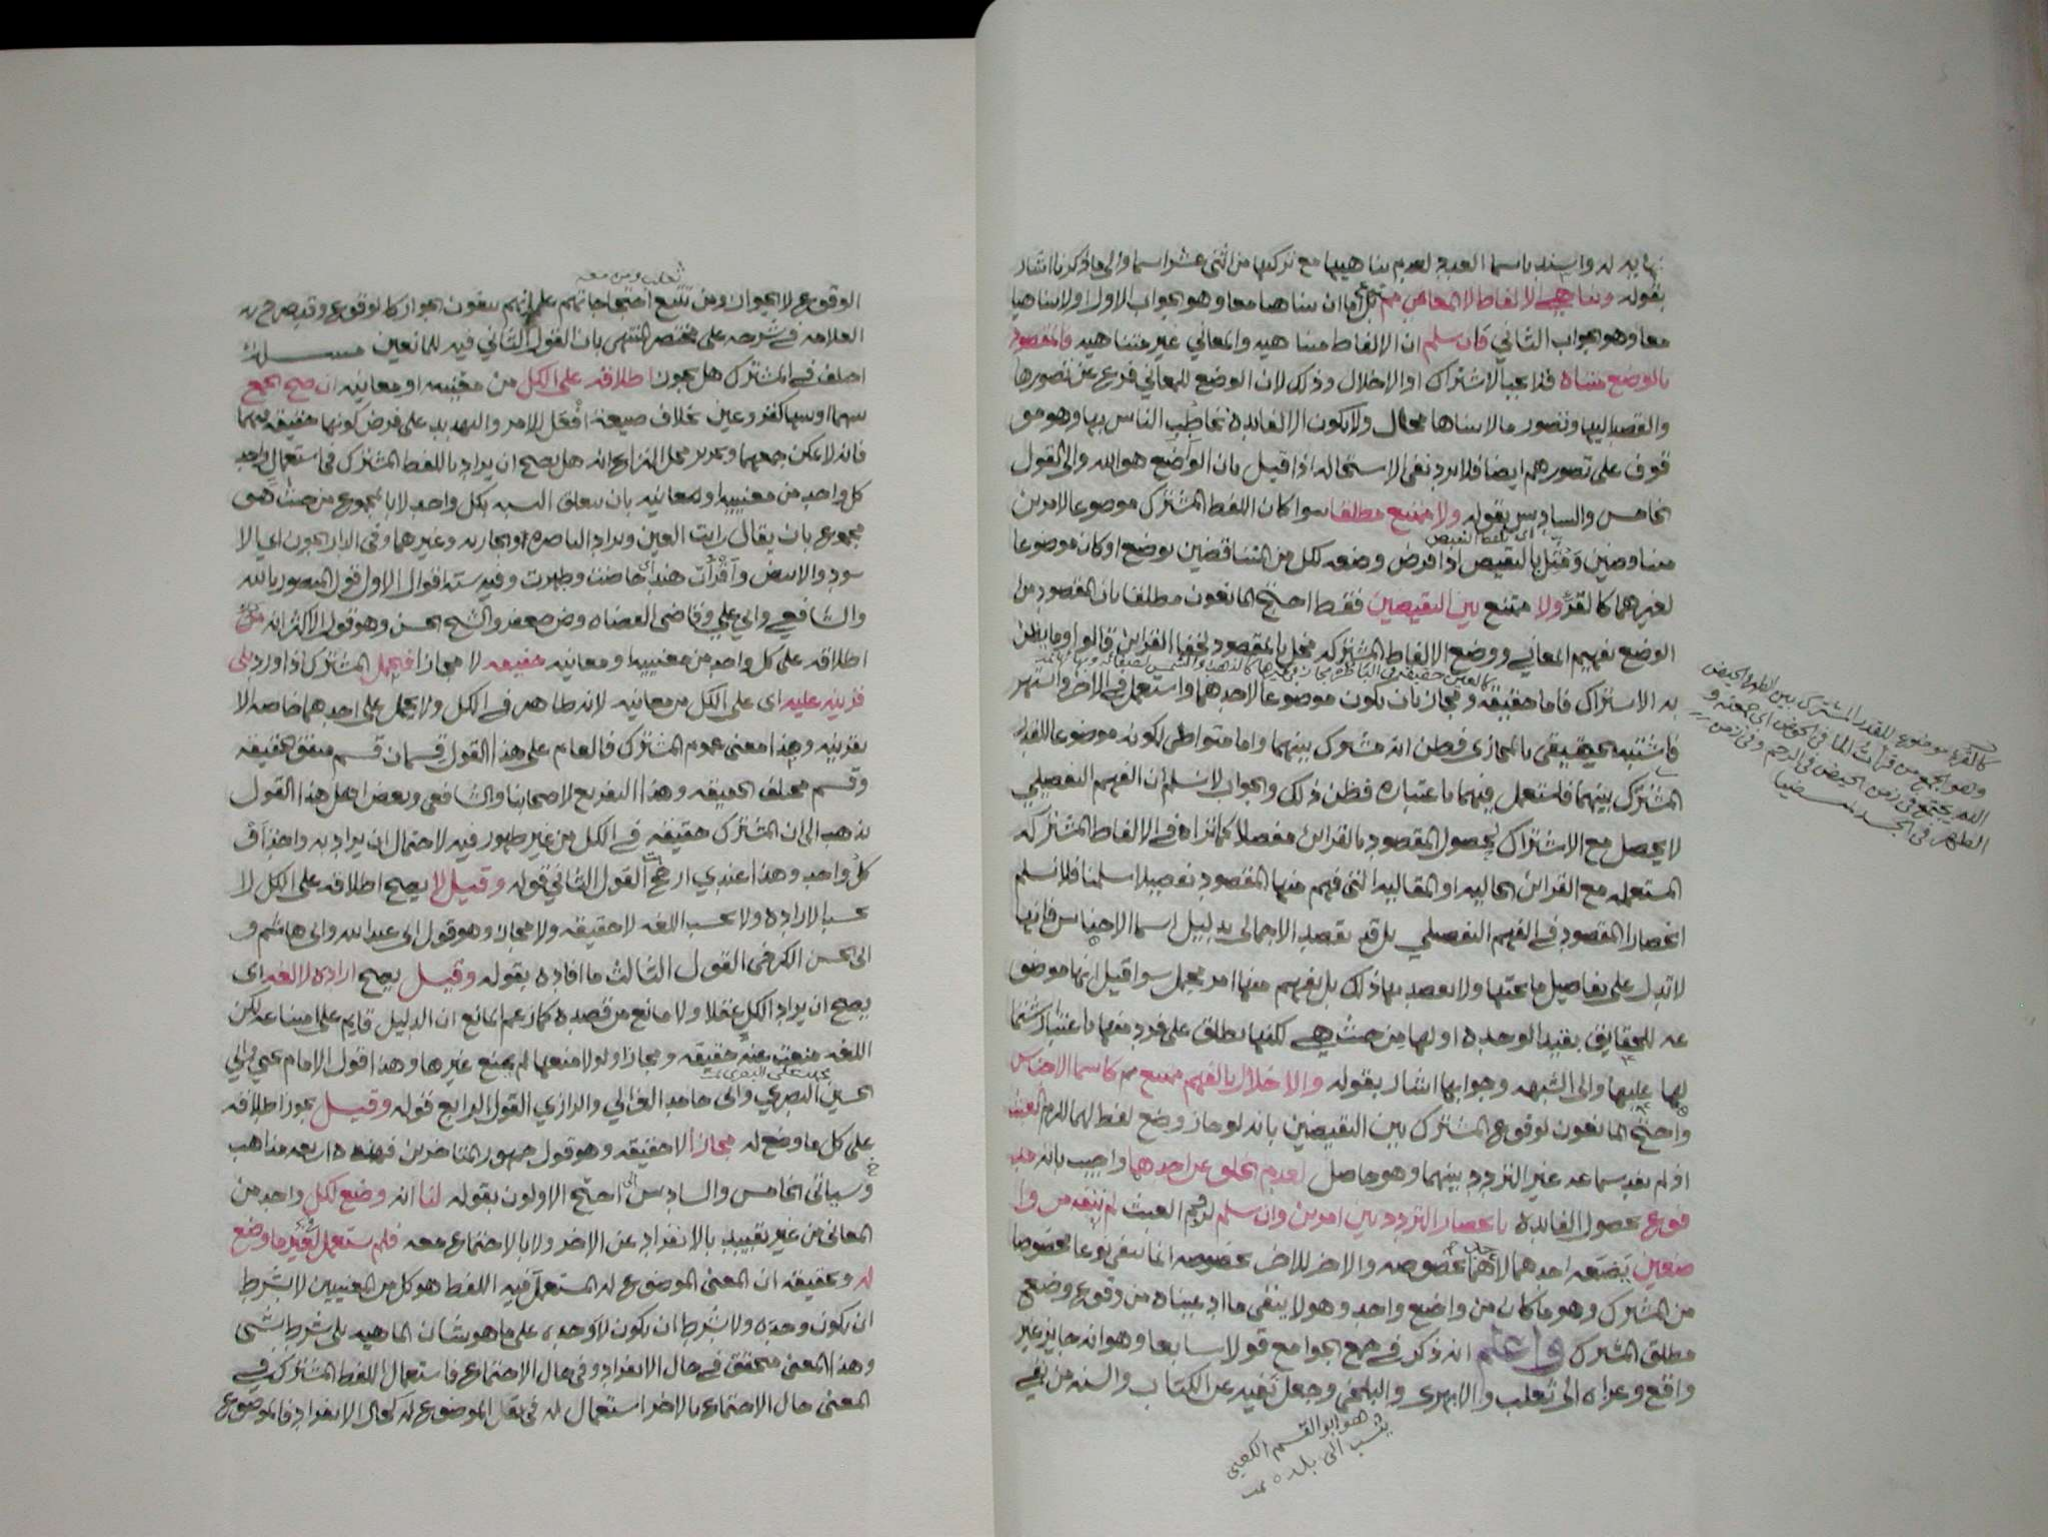 نهايه له واسند باسما العدد لعدم تناهيها مع تركبها من اثنى عشر اسما والى ما ذكرنا اشار
بقوله وتناهي الالفاظ لا المعاني مم بل اما ان تناهيا معا وهو الجواب الاول اولا تناهيا
معا وهو الجواب الثاني فان سلم ان الالفاظ متناهيه والمعاني غير متناهيه فالمقصود
بالوضع متناه فلا يجب الاشتراك او الاخلال وذلك لان الوضع للمعاني فرع عن تصورها
والقصد اليها وتصور ما لا يتناها محال ولا يكون الا لفايده تخاطب الناس بها وهو مو
قوف على تصورهم ايضا فلا يرد نفى الاستحاله اذا قيل بان الواضع هو الله والى القول
الخامس والسادس بقوله ولا ممتنع مطلقا سوا كان اللفظ المشترك موضوعا لامرين
اى بلفظ النقيض
متناقضين ومثل بالنقيض اذا فرض وضعه لكل من المتناقضين بوضع او كان موضوعا
لغيرهما كالقرء ولا ممتنع بين النقيضين فقط احتج المانعون مطلقا بان المقصود من
الوضع تفهيم المعاني ووضع الالفاظ المشتركه مخل بالمقصود لخفا القراين قالوا وما يظن
كالعين حقيقه فى الباصره مجاز فى غيرها كالذهب والشمس لصفائه وبهائها
به الاشتراك فاما حقيقه ومجاز بان يكون موضوعا لاحدهما واستعمل فى الاخر واشتهر
فاشتبه الحقيقى بالمجازى فظن انه مشترك بينهما واما متواطى لكونه موضوعا للقدر
المشترك بينهما فاستعمل فيهما باعتباره فظن ذلك والجواب لا نسلم ان الفهم التفصيلي
لا يحصل مع الاشتراك لحصول المقصود بالقراين مفصلا كما تراه فى الالفاظ المشتركه
المستعمله مع القراين الحاليه او المقاليه التى فهم منها المقصود تفصيلا سلمنا فلا نسلم
انحصار المقصود فى الفهم التفصيلي بل قد يقصد الاجمالى بدليل اسما الاجناس فانها
لا تدل على تفاصيل ما تحتها ولا يقصد بها ذلك بل يفهم منها امر مجمل سوا قيل انها موضو
عه للحقايق بقيد الوحده او لها من حيث هي لكنها تطلق على فرد منها باعتبار اشتما
لها عليها والى الشبهه وجوابها اشار بقوله والاخلال بالفهم ممنوع مم كاسما الاجناس
واحتج المانعون لوقوع المشترك بين النقيضين بانه لو جاز وضع لفظ لهما للزم العبث
اذ لم يفد سماعه غير التردد بينهما وهو حاصل لعدم الخلو عن احدهما واجيب بانه
فوع بحصول الفايده بانحصار التردد بين امرين وان سلم لزوم العبث لم يمتنع من وا
ضعين يضعه احدهما لاحدهما بخصوصه والاخر للاخر بخصوصه انما ينفي نوعا مخصوصا
من المشترك وهو ما كان من واضع واحد وهو لا ينفى ما ادعيناه من وقوع وضع
مطلق المشترك واعلم انه ذكر فى جمع الجوامع قولا سابعا وهو انه جايز غير
واقع وعزاه الى ثعلب والابهرى والبلخى وجعل نفيه عن الكتاب والسنه من نفي
هو ابو القسم الكعبي
ينسب الى بلده تمت
كالقرء موضوع للقدر المشترك بين الطهر والحيض
وهو الجمع من قرأت الما فى الحوض اى جمعته و
الدم يجتمع فى زمن الحيض فى الرحم وفى زمن
الطهر فى الجسد
ثعلب ومن معه
الوقوع لا الجواز ومن تتبع احتجاجاتهم علم انهم ينفون الجواز كالوقوع وقد صرح به
العلامه فى شرحه على مختصر المنتهى بان القول الثاني فيه للمانعين مسئله
اختلف فى المشترك هل يجوز اطلاقه على الكل من معنييه او معانيه ان صح الجمع
بينهما او بينها كقرء وعين بخلاف صيغة افعل للامر والتهديد على فرض كونها حقيقه فيهما
فانه لا يمكن جمعهما وتحرير محل النزاع انه هل يصح ان يراد باللفظ المشترك فى استعمال واحد
كل واحد من معنييه او معانيه بان تتعلق النسبه بكل واحد لا بالمجموع من حيث هو
مجموع بان يقال رايت العين ويراد الباصره والجاريه وغيرهما وفى الدار الجون اي الا
سود والابيض واقرأت هند اى حاضت وطهرت وفيه سته اقوال الاول قول المنصور بالله
والشافعي وابي علي وقاضى القضاه وض جعفر والشيخ الحسن وهو قول الاكثر انه
اطلاقه على كل واحد من معنييه او معانيه حقيقه لا مجازا فيحمل المشترك اذا ورد بلى
قرينه عليه اى على الكل من معانيه لانه ظاهر فى الكل ولا يحمل على احدهما خاصه الا
بقرينه وهذا معنى عموم المشترك فالعام على هذا القول قسمان قسم متفق الحقيقه
وقسم مختلف الحقيقه وهذا التفريع لاصحابنا والشافعى وبعض اهل هذا القول
يذهب الى ان المشترك حقيقه فى الكل من غير ظهور فيه لاحتمال ان يراد به واحد او
كل واحد وهذا عندي ارجح القول الثاني قوله وقيل لا يصح اطلاقه على الكل لا
بحسب الاراده ولا بحسب اللغه لا حقيقه ولا مجازا وهو قول ابى عبد الله وابى هاشم و
ابى الحسن الكرخى القول الثالث ما افاده بقوله وقيل يصح اراده لا لغه اى
يصح ان يراد الكل عقلا ولا مانع من قصده كما زعم المانع ان الدليل قايم على امتناعه لكن
اللغه منعت عنه حقيقه ومجازا ولولا منعها لم يمتنع غيرها وهذا قول الامام يحيى وابي
الحسين البصري وابى حامد الغزالي والرازي القول الرابع قوله وقيل يجوز اطلاقه
على كل ما وضع له مجازا لا حقيقه وهو قول جمهور المتاخرين فهذه اربعه مذاهب
وسياتى الخامس والسادس احتج الاولون بقوله لنا انه وضع لكل واحد من
المعانى من غير تقييد بالانفراد عن الاخر ولا بالاجتماع معه فلم يستعمل فى غير ما وضع
له وتحقيقه ان المعنى الموضوع له المستعمل فيه اللفظ هو كل من المعنيين لا بشرط
ان يكون وحده ولا بشرط ان يكون لا وحده على ما هو شان الماهيه بلى شرط شى
وهذا المعنى متحقق فى حال الانفراد وفى حال الاجتماع فاستعمال اللفظ المشترك في
المعنى حال الاجتماع بالاخر استعمال له فى نفس الموضوع له كحال الانفراد فالموضوع